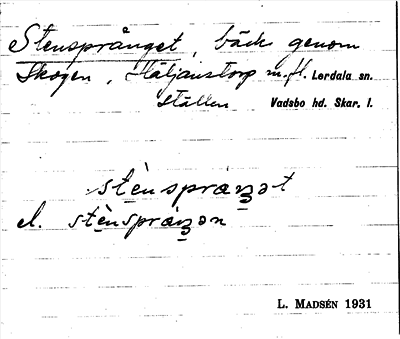 Stensprånget, bäck genom
Skogen, Häljanstorp m.fl. Lerdala sn.
ställen Vadsbo hd. Skar. l.
stènspråᶇət
el. stènspråᶇən
L. MADSÉN 1931